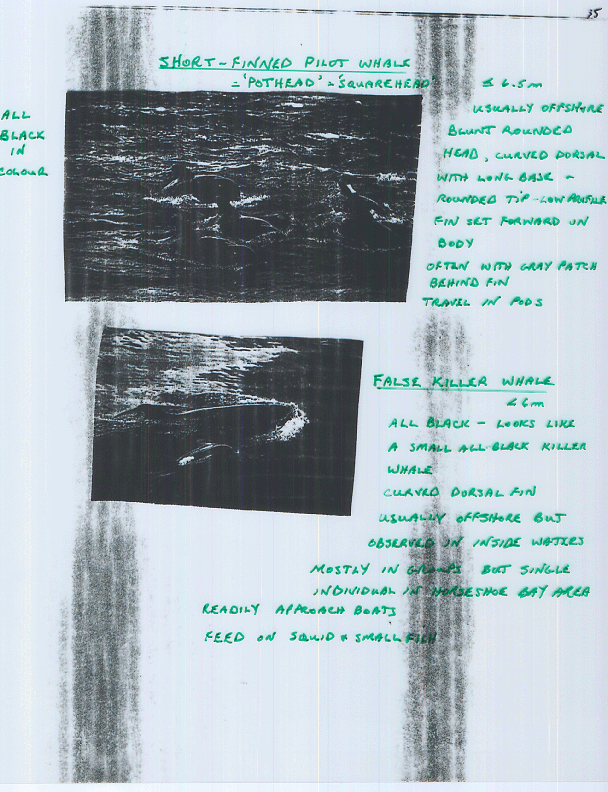 35
SHORT-FINNED PILOT WHALE
= 'POTHEAD' = 'SQUAREHEAD'
≤ 6.5m
ALL
BLACK
IN
COLOUR
USUALLY OFFSHORE
BLUNT ROUNDED
HEAD, CURVED DORSAL
WITH LONG BASE -
ROUNDED TIP - LOW PROFILE
FIN SET FORWARD ON
BODY
OFTEN WITH GRAY PATCH
BEHIND FIN
TRAVEL IN PODS
FALSE KILLER WHALE
≤ 6m
ALL BLACK - LOOKS LIKE
A SMALL ALL-BLACK KILLER
WHALE
CURVED DORSAL FIN
USUALLY OFFSHORE BUT
OBSERVED IN INSIDE WATERS
MOSTLY IN GROUPS BUT SINGLE
INDIVIDUAL IN HORSESHOE BAY AREA
READILY APPROACH BOATS
FEED ON SQUID & SMALL FISH